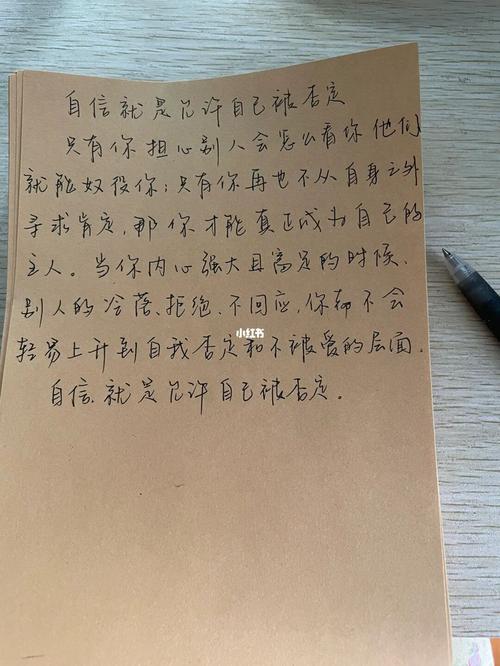 自信就是允许自己被否定
只有你担心别人会怎么看你他们
就能奴役你；只有你再也不从自身之外
寻求肯定，那你才能真正成为自己的
主人。当你内心强大且高定的时候、
别人的冷落、拒绝、不回应，你都不会
小红书
轻易上升到自我否定和不被爱的层面。
自信就是允许自己被否定。